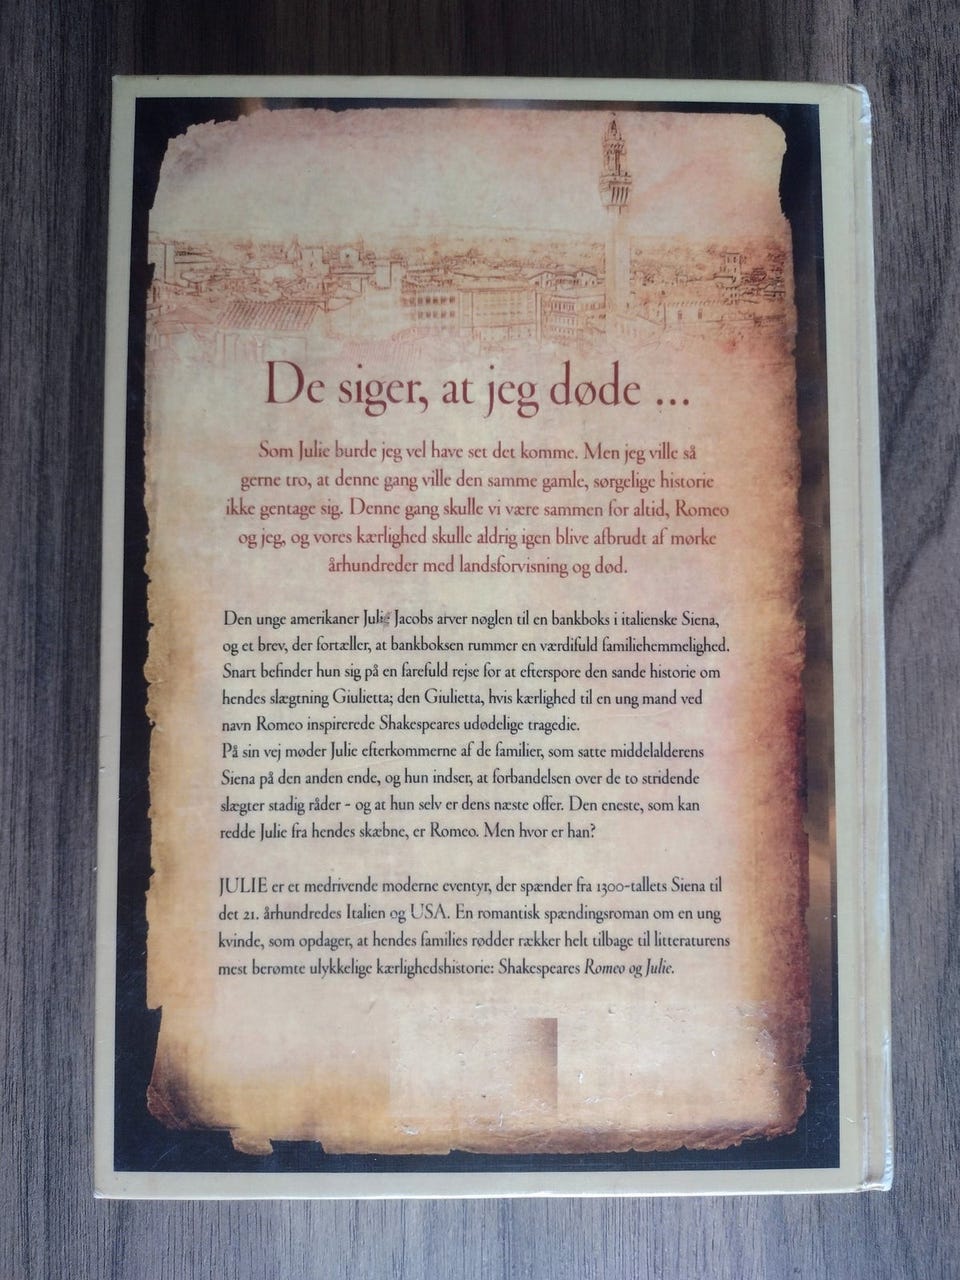 De siger, at jeg døde ...
Som Julie burde jeg vel have set det komme. Men jeg ville så
gerne tro, at denne gang ville den samme gamle, sørgelige historie
ikke gentage sig. Denne gang skulle vi være sammen for altid, Romeo
og jeg, og vores kærlighed skulle aldrig igen blive afbrudt af mørke
århundreder med landsforvisning og død.
Den unge amerikaner Julie Jacobs arver nøglen til en bankboks i italienske Siena,
og et brev, der fortæller, at bankboksen rummer en værdifuld familiehemmelighed.
Snart befinder hun sig på en farefuld rejse for at efterspore den sande historie om
hendes slægtning Giulietta; den Giulietta, hvis kærlighed til en ung mand ved
navn Romeo inspirerede Shakespeares udødelige tragedie.
På sin vej møder Julie efterkommerne af de familier, som satte middelalderens
Siena på den anden ende, og hun indser, at forbandelsen over de to stridende
slægter stadig råder - og at hun selv er dens næste offer. Den eneste, som kan
redde Julie fra hendes skæbne, er Romeo. Men hvor er han?
JULIE er et medrivende moderne eventyr, der spænder fra 1300-tallets Siena til
det 21. århundredes Italien og USA. En romantisk spændingsroman om en ung
kvinde, som opdager, at hendes families rødder rækker helt tilbage til litteraturens
mest berømte ulykkelige kærlighedshistorie: Shakespeares Romeo og Julie.